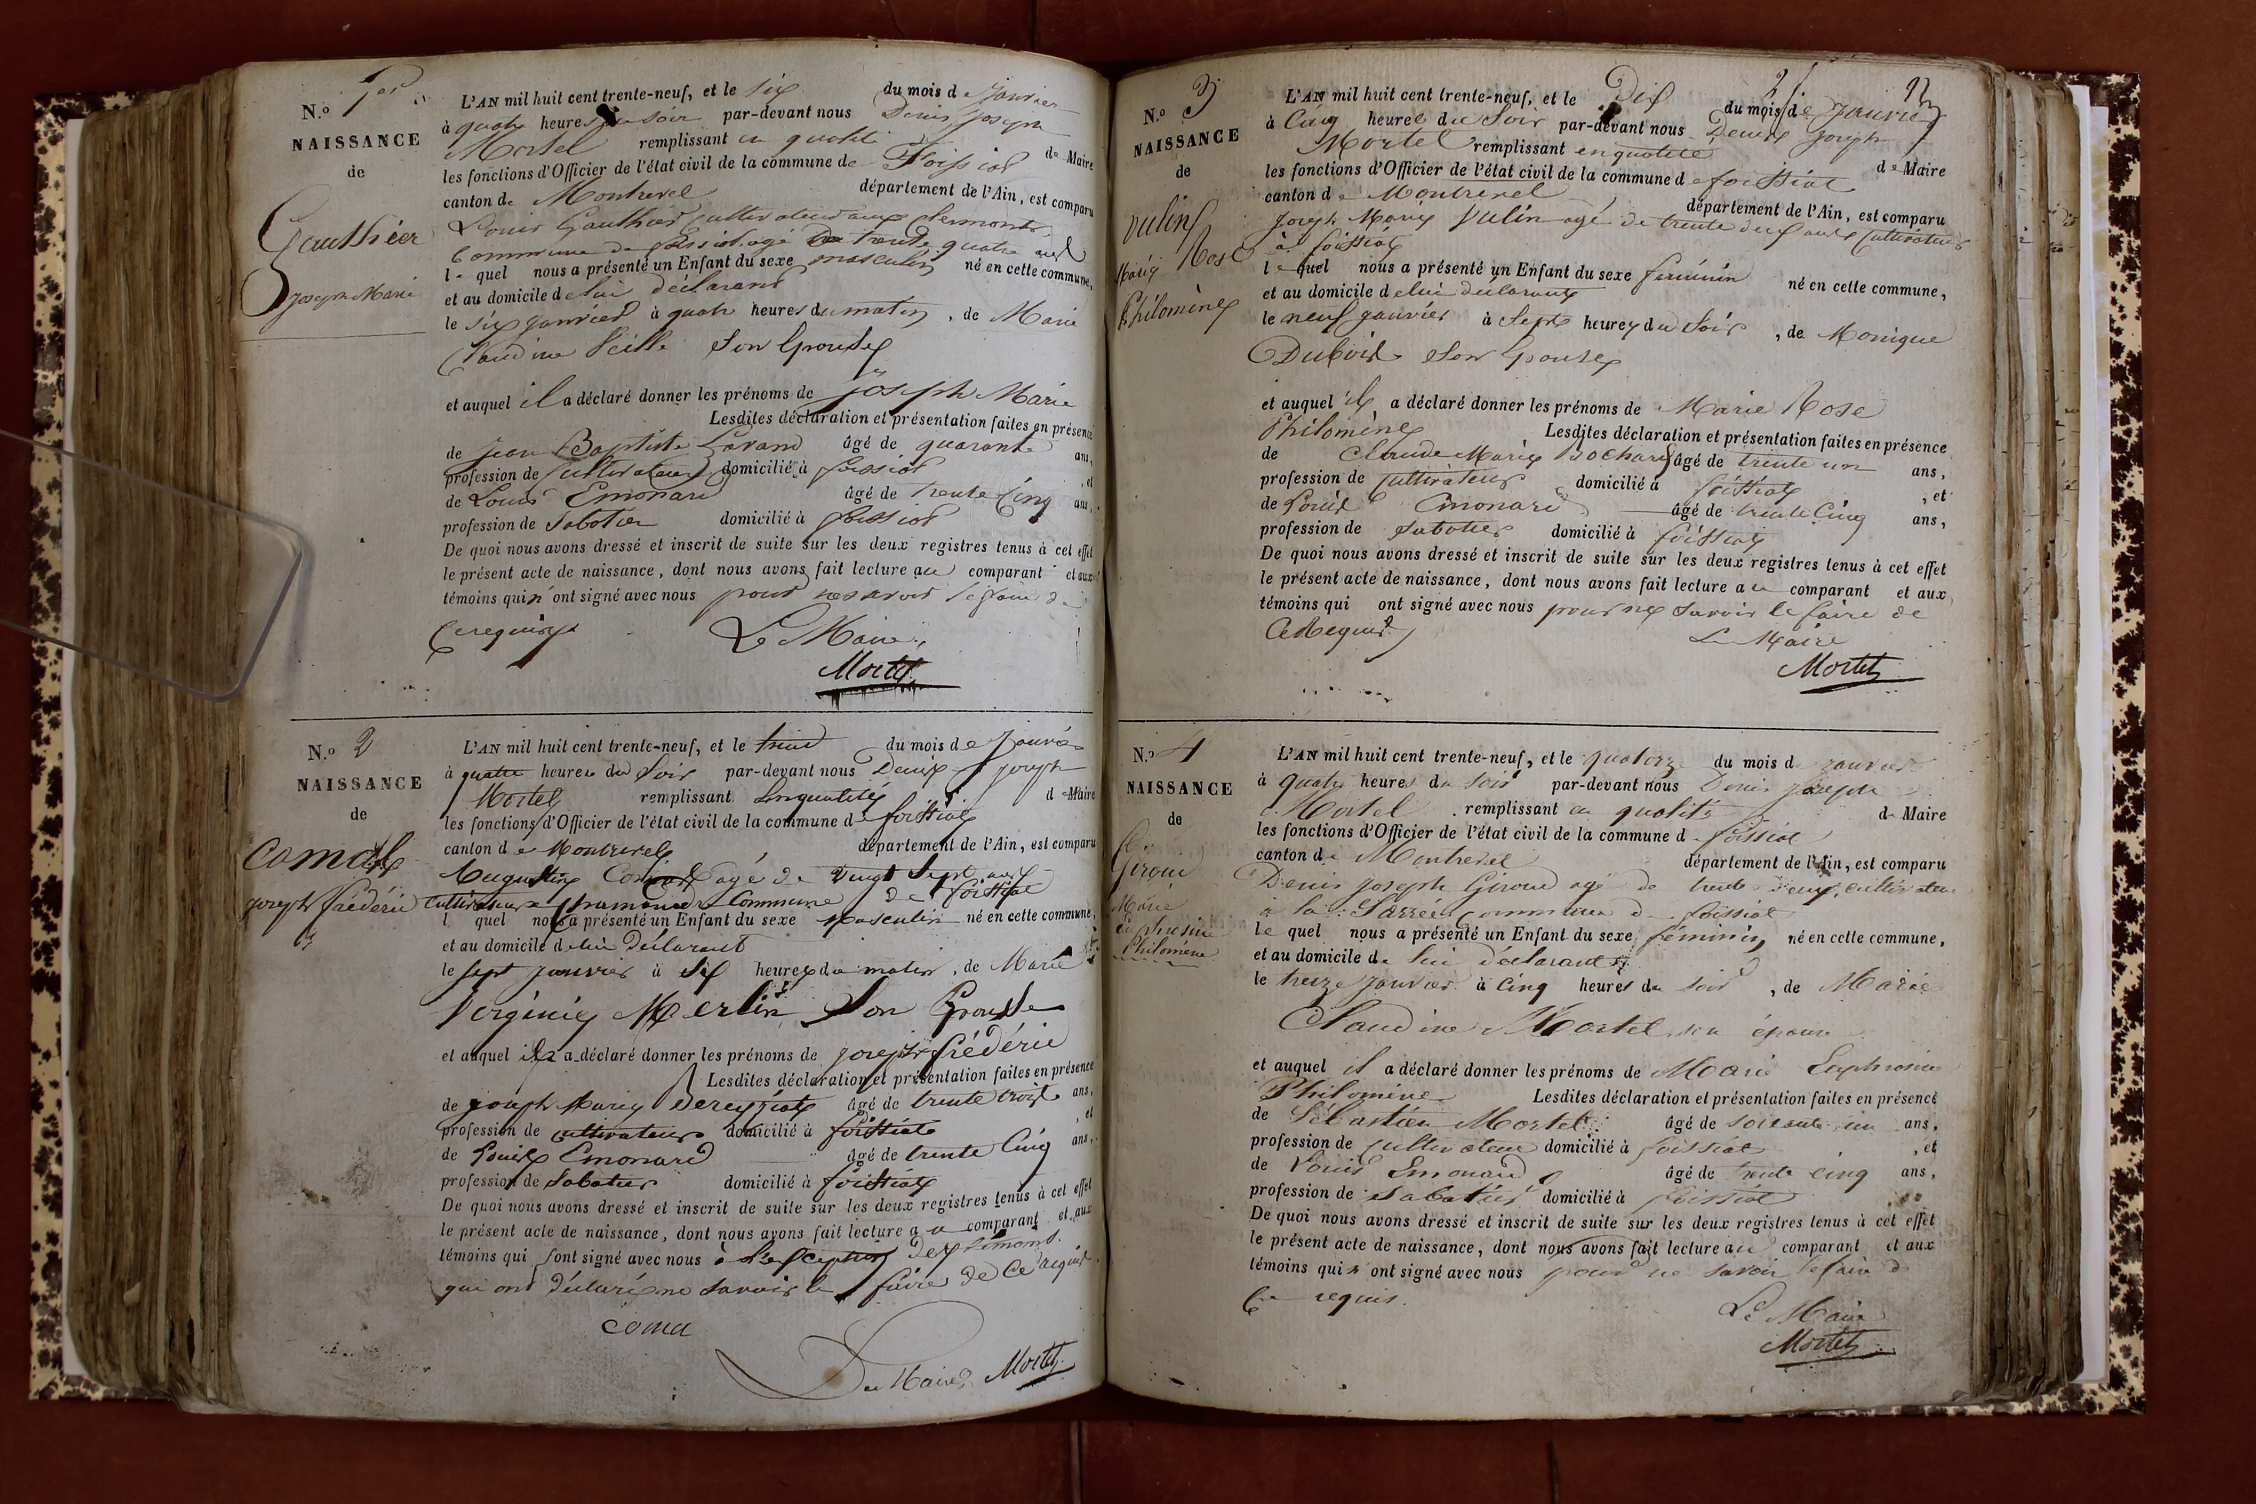 N.o 1er
NAISSANCE
de
Gauthier
Joseph Marie
L'AN mil huit cent trente-neuf, et le six du mois de Janvier
à quatre heures du soir par-devant nous Denis Joseph
Mortel remplissant en qualité de Maire
les fonctions d'Officier de l'état civil de la commune de Foissiat
canton de Montrevel département de l'Ain, est comparu
Louis Gauthier cultivateur aux Clermonts
Commune de foissiat agé de trente quatre ans
le quel nous a présenté un Enfant du sexe masculin né en cette commune,
et au domicile de lui déclarant
le six janvier à quatre heures du matin, de Marie
Claudine Son Epouse
et auquel il a déclaré donner les prénoms de joseph Marie
Lesdites déclaration et présentation faites en présence
de jean Baptiste âgé de quarante ans,
profession de Cultivateur domicilié à foissiat , et
de Louis Emonard âgé de trente Cinq ans,
profession de Sabotier domicilié à foissiat
De quoi nous avons dressé et inscrit de suite sur les deux registres tenus à cet effet
le présent acte de naissance, dont nous avons fait lecture au comparant et aux
témoins qui n'ont signé avec nous pour ne savoir le faire de
Ce requis
Le Maire
Mortel
N.o 2
NAISSANCE
de
Comas
joseph fréderic
L'AN mil huit cent trente-neuf, et le du mois de Janvier
à quatre heures du Soir par-devant nous Denis joseph
Mortel remplissant En qualité de Maire
les fonctions d'Officier de l'état civil de la commune de foissiat
canton de Montrevel département de l'Ain, est comparu
Augustin agé de vingt Sept ans
Cultivateur Commune de foissiat
l quel nous a présenté un Enfant du sexe masculin né en cette commune,
et au domicile de lui déclarant
le sept janvier à Six heures du matin, de Marie
Virginie Merlin Son Epouse
et auquel il a déclaré donner les prénoms de joseph frédéric
Lesdites déclaration et présentation faites en présence
de joseph Marie âgé de trente trois ans,
profession de cultivateur domicilié à foissiat , et
de Louis Emonard âgé de trente Cinq ans,
profession de Sabotier domicilié à foissiat
De quoi nous avons dressé et inscrit de suite sur les deux registres tenus à cet effet
le présent acte de naissance, dont nous avons fait lecture au comparant et aux
témoins qui ont signé avec nous à l'exception des témoins
qui ont déclaré ne savoir le faire de Ce requis
coma
Le Maire Mortel
N.o 3
NAISSANCE
de
Vulin
Marie Rose
Philomène
L'AN mil huit cent trente-neuf, et le Dix du mois de Janvier
à Cinq heures du Soir par-devant nous Denis joseph
Mortel remplissant en qualité de Maire
les fonctions d'Officier de l'état civil de la commune de foissiat
canton de Montrevel département de l'Ain, est comparu
joseph Marie Vulin agé de trente deux ans Cultivateur
à foissiat
le quel nous a présenté un Enfant du sexe féminin né en cette commune,
et au domicile de lui déclarant
le neuf janvier à Sept heures du Soir, de Monique
Dubois Son Epouse
et auquel il a déclaré donner les prénoms de Marie Rose
Philomène Lesdites déclaration et présentation faites en présence
de Claude Marie Bochard âgé de trente un ans,
profession de Cultivateur domicilié à foissiat , et
de Louis Emonard âgé de trente Cinq ans,
profession de Sabotier domicilié à foissiat
De quoi nous avons dressé et inscrit de suite sur les deux registres tenus à cet effet
le présent acte de naissance, dont nous avons fait lecture au comparant et aux
témoins qui ont signé avec nous pour ne savoir le faire de
Ce Requis
Le Maire
Mortel
N.o 4
NAISSANCE
de
Giroud
Marie
Euphrosine
Philomène
L'AN mil huit cent trente-neuf, et le quatorze du mois de janvier
à quatre heures du soir par-devant nous Denis joseph
Mortel remplissant en qualité de Maire
les fonctions d'Officier de l'état civil de la commune de foissiat
canton de Montrevel département de l'Ain, est comparu
Denis joseph Giroud agé de trente deux, cultivateur
à la Sarrée commune de foissiat
le quel nous a présenté un Enfant du sexe féminin né en cette commune,
et au domicile de lui déclarant
le treize janvier à cinq heures du soir, de Marie
Claudine Mortel son épouse
et auquel il a déclaré donner les prénoms de Marie Euphrosine
Philomène Lesdites déclaration et présentation faites en présence
de Sébastien Mortel âgé de soixante un ans,
profession de cultivateur domicilié à foissiat , et
de Louis Emonard âgé de trente cinq ans,
profession de Sabotier domicilié à foissiat
De quoi nous avons dressé et inscrit de suite sur les deux registres tenus à cet effet
le présent acte de naissance, dont nous avons fait lecture au comparant et aux
témoins qui n'ont signé avec nous pour ne savoir le faire de
Ce requis.
Le Maire
Mortel